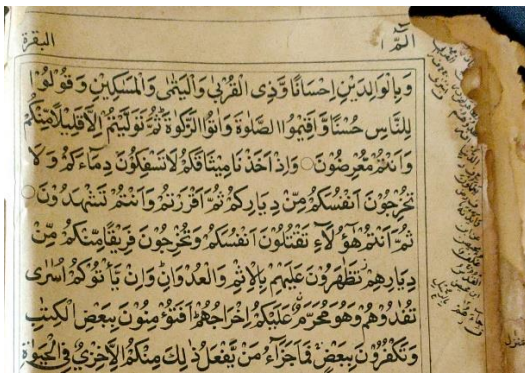 الٓمّٓ ١
البقرة
وَبِالْوَالِدَيْنِ اِحْسَانًا وَّذِى الْقُرْبٰى وَالْيَتٰمٰى وَالْمَسٰكِيْنِ وَقُوْلُوْا
لِلنَّاسِ حُسْنًا وَّاَقِيْمُوا الصَّلٰوةَ وَاٰتُوا الزَّكٰوةَ ثُمَّ تَوَلَّيْتُمْ اِلَّا قَلِيْلًا مِّنْكُمْ
وَاَنْتُمْ مُّعْرِضُوْنَ ○ وَاِذْ اَخَذْنَا مِيْثَاقَكُمْ لَا تَسْفِكُوْنَ دِمَآءَكُمْ وَلَا
تُخْرِجُوْنَ اَنْفُسَكُمْ مِّنْ دِيَارِكُمْ ثُمَّ اَقْرَرْتُمْ وَاَنْتُمْ تَشْهَدُوْنَ ○
ثُمَّ اَنْتُمْ هٰٓؤُلَآءِ تَقْتُلُوْنَ اَنْفُسَكُمْ وَتُخْرِجُوْنَ فَرِيْقًا مِّنْكُمْ مِّنْ
دِيَارِهِمْ تَظٰهَرُوْنَ عَلَيْهِمْ بِالْاِثْمِ وَالْعُدْوَانِ وَاِنْ يَّاْتُوْكُمْ اُسٰرٰى
تُفٰدُوْهُمْ وَهُوَ مُحَرَّمٌ عَلَيْكُمْ اِخْرَاجُهُمْ اَفَتُؤْمِنُوْنَ بِبَعْضِ الْكِتٰبِ
وَتَكْفُرُوْنَ بِبَعْضٍ فَمَا جَزَآءُ مَنْ يَّفْعَلُ ذٰلِكَ مِنْكُمْ اِلَّا خِزْىٌ فِى الْحَيٰوةِ